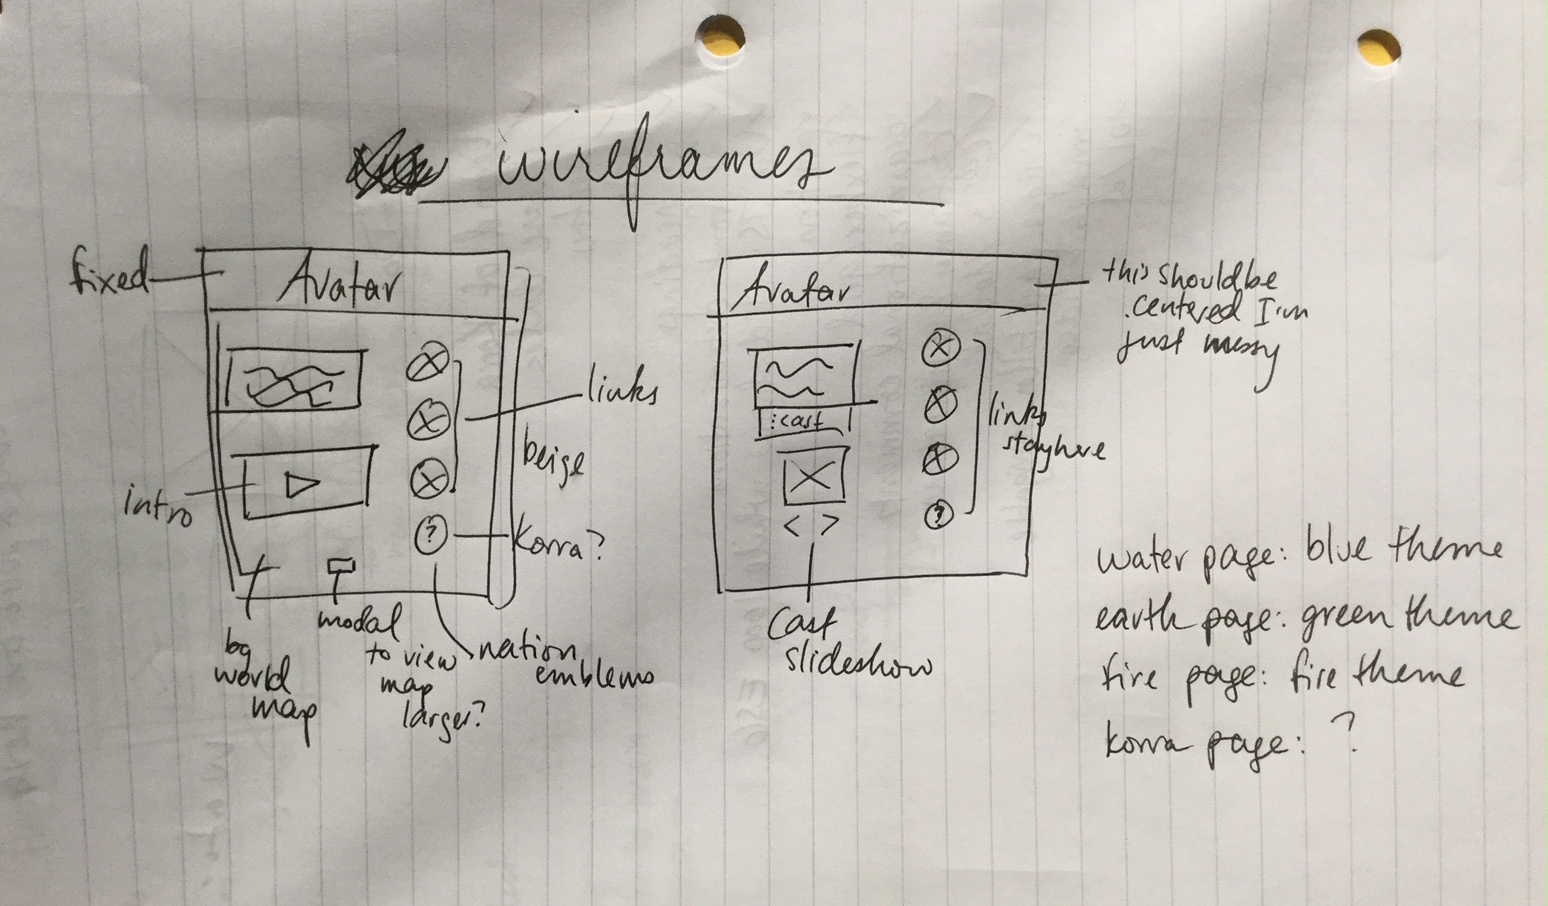 wireframes
fixed
Avatar
links
beige
intro
?
Korra?
bg
world
map
modal
to view
map
larger?
nation
emblems
Avatar
this should be
centered I'm
just messy
cast
links
stay here
?
< >
Cast
slideshow
water page: blue theme
earth page: green theme
fire page: fire theme
korra page: ?